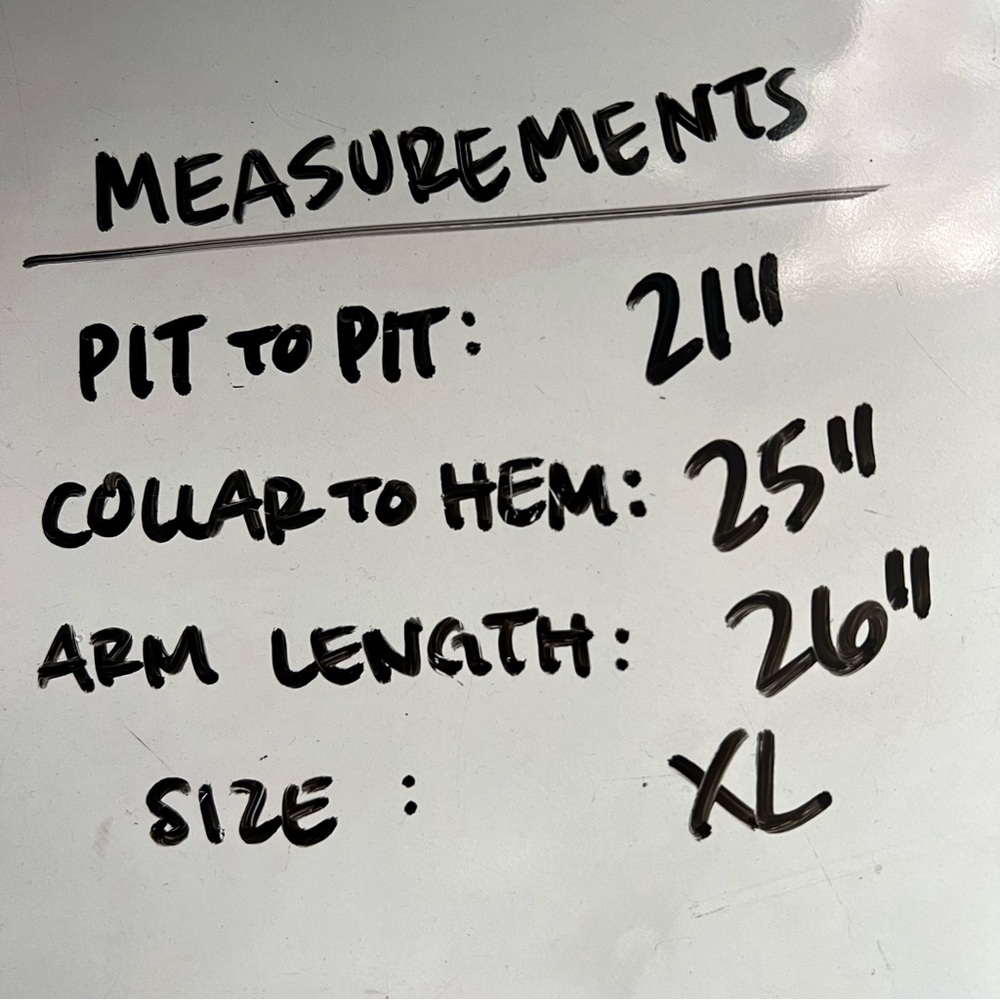 MEASUREMENTS
PIT TO PIT: 21"
COLLAR TO HEM: 25"
ARM LENGTH: 26"
SIZE : XL